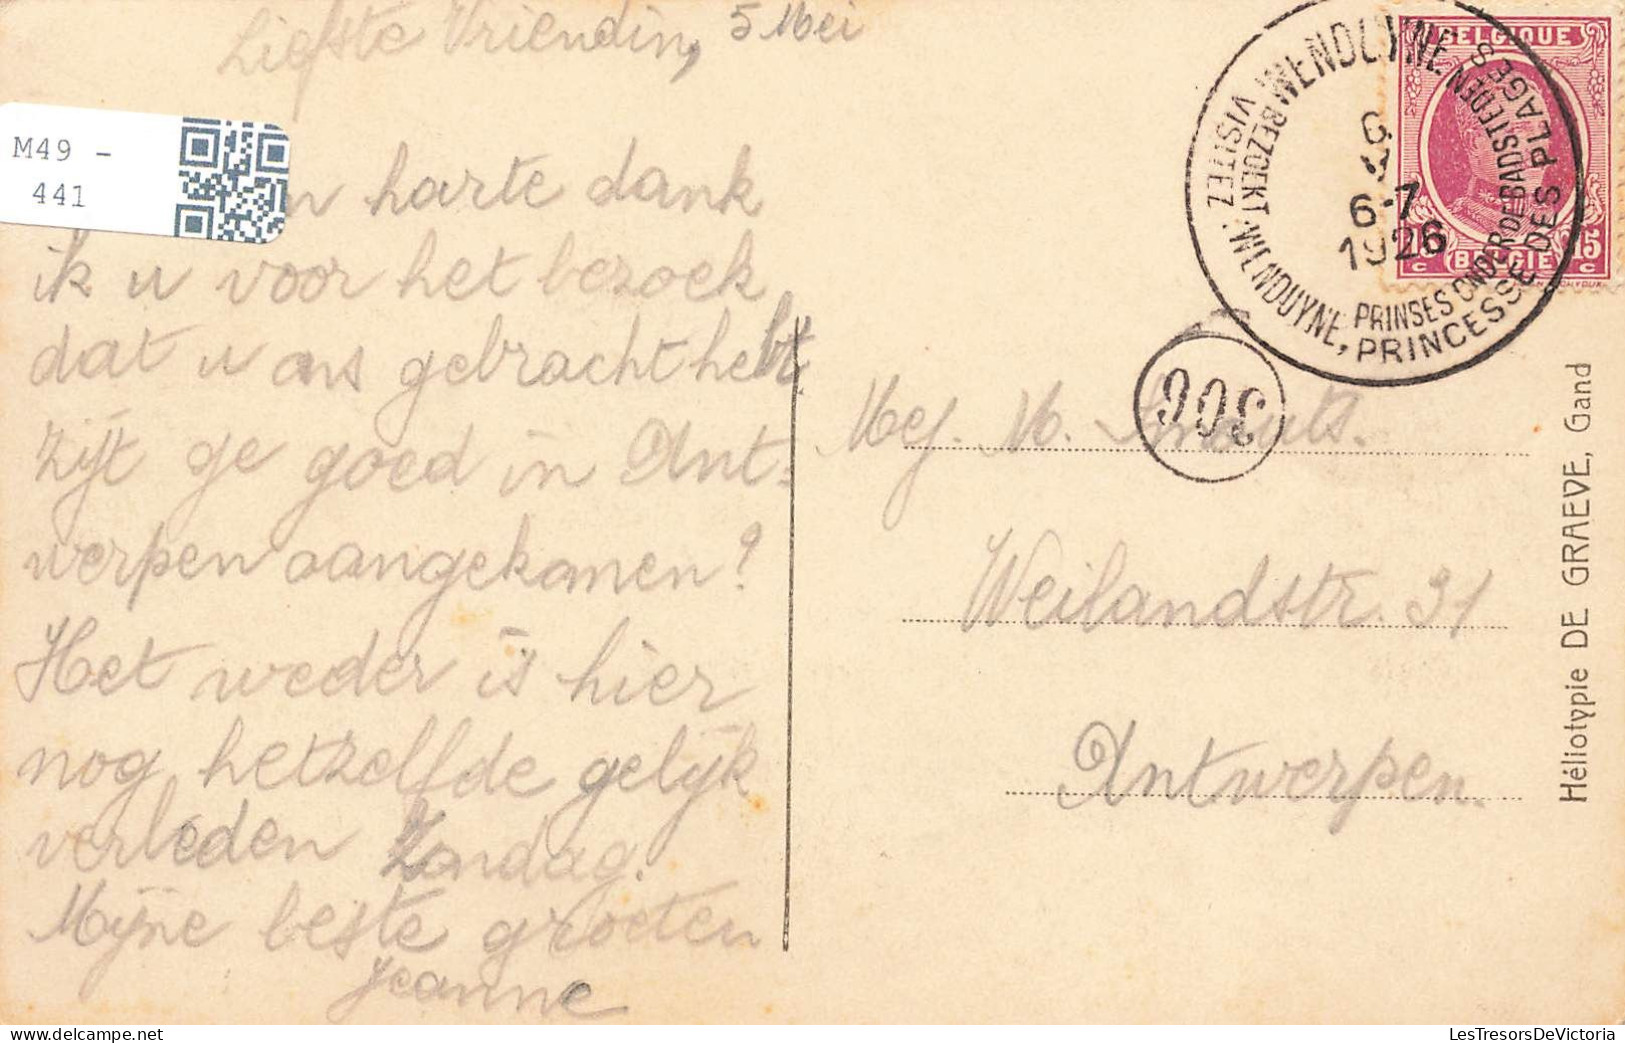 Liefste Vriendin, 5 Mei
harte dank
ik u voor het bezoek
dat u ons gebracht hebt
zijt ge goed in Ant-
werpen aangekomen?
Het weder is hier
nog hetzelfde gelijk
verleden Zondag.
Mijne beste groeten
Jeanne
M49 -
441
Mej. M.
Weilandstr. 31
Antwerpen.
WENDUYNE
6-7
1926
BEZOEKT WENDUYNE, PRINSES ONDER DE BADSTEDEN
VISITEZ WENDUYNE, PRINCESSE DES PLAGES
BELGIQUE
BELGIË
15
c c
306
Héliotypie DE GRAEVE, Gand
LesTresorsDeVictoria.com